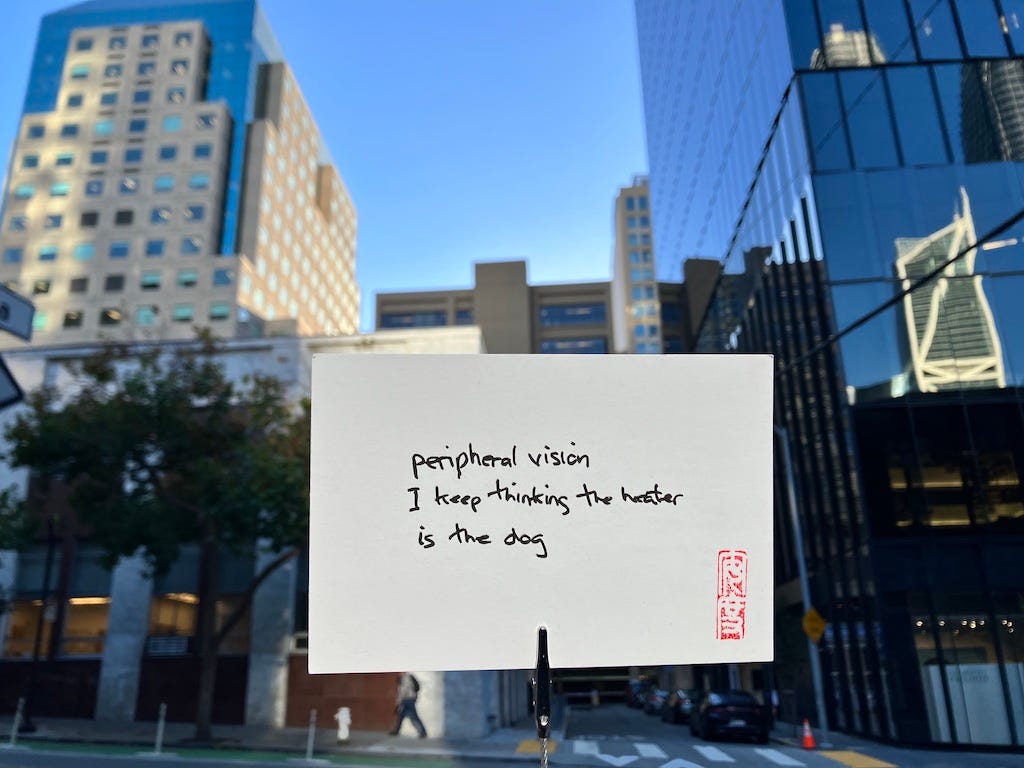 peripheral vision
I keep thinking the heater
is the dog